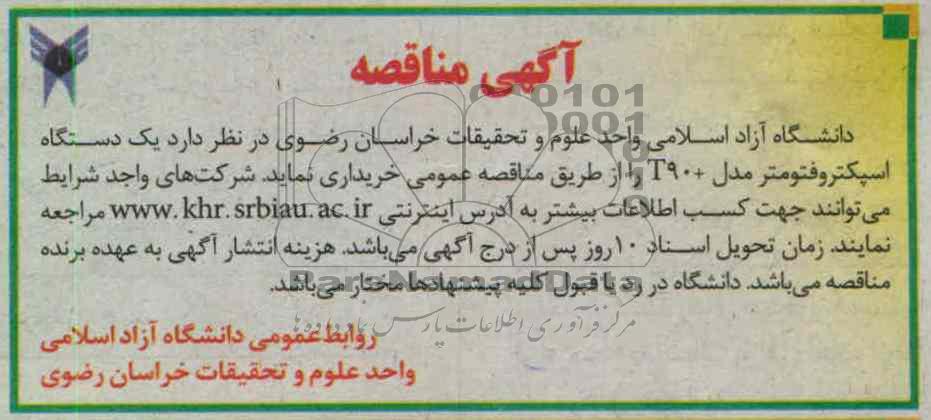 آگهی مناقصه
دانشگاه آزاد اسلامی واحد علوم و تحقیقات خراسان رضوی در نظر دارد یک دستگاه
اسپکتروفتومتر مدل T۹۰+ را از طریق مناقصه عمومی خریداری نماید. شرکت‌های واجد شرایط
می‌توانند جهت کسب اطلاعات بیشتر به آدرس اینترنتی www.khr.srbiau.ac.ir مراجعه
نمایند. زمان تحویل اسناد ۱۰ روز پس از درج آگهی می‌باشد. هزینه انتشار آگهی به عهده برنده
مناقصه می‌باشد. دانشگاه در رد یا قبول کلیه پیشنهادها مختار می‌باشد.
ParsNamadData
مرکز فرآوری اطلاعات پارس نماد داده‌ها
روابط عمومی دانشگاه آزاد اسلامی
واحد علوم و تحقیقات خراسان رضوی